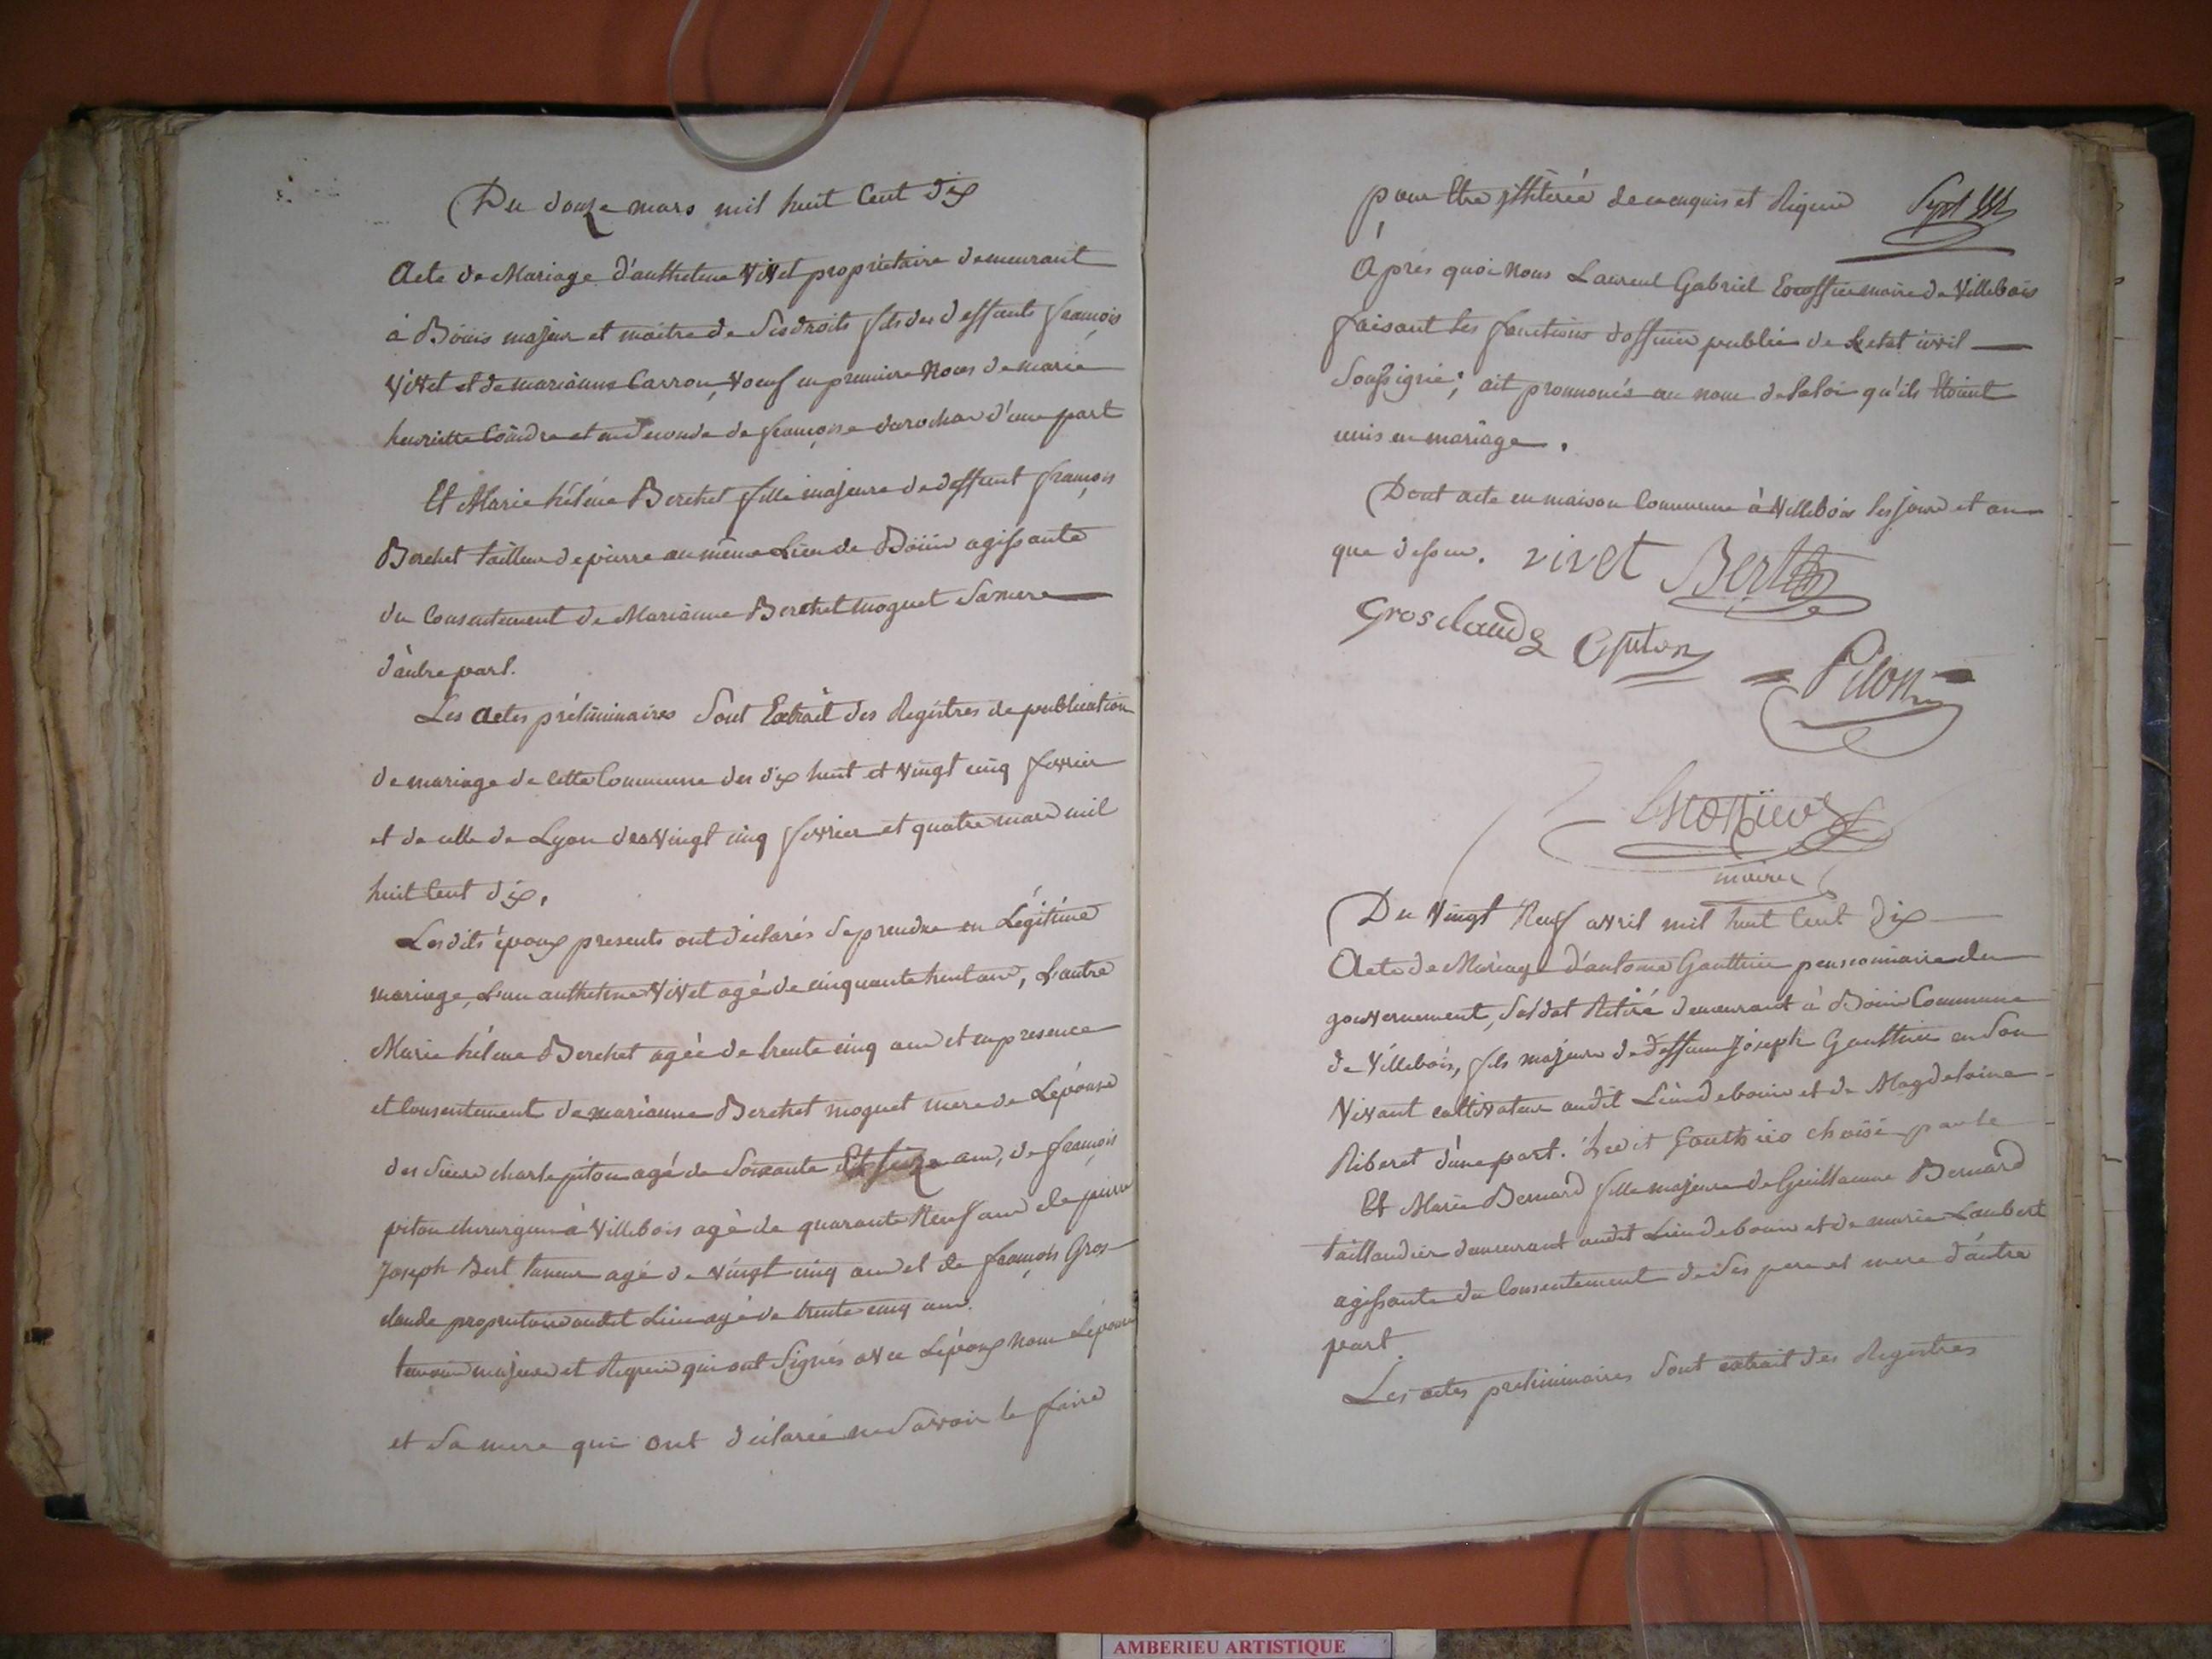 Du douze mars mil huit Cent dix
Acte de Mariage d'anthelme Vivet propriétaire demeurant
à Boüis majeur et maitre de Ses droits fils des deffunts françois
Vivet et de marianne Carron, Voeuf en premiere Noces de marie
henriette Coindre et en Seconde de françoise durochar d'une part
Et Marie hélène Berchet fille majeure de deffunt françois
Berchet tailleur de pierre au même Lieu de Boüis agissante
du Consentement de Marianne Berchet moguet Sa mere
d'autre part.
Les Actes préliminaires Sont Extrait des Registres de publication
de mariage de cette Commune des dix huit et vingt cinq fevrier
et de celle de Lyon des vingt cinq fevrier et quatre mars mil
huit Cent dix,
Lesdits époux presents ont déclarés Se prendre en Légitime
mariage, L'un anthelme Vivet agé de cinquante huit ans, L'autre
Marie hélene Berchet agée de trente cinq ans et en presence
et Consentement de marianne Berchet moguet mere de L'épouse
des Sieurs charle piton agé de Soixante Et Seize ans, de françois
piton chirurgien à Villebois agé de quarante Neuf ans de pierre
Joseph Bert taneur agé de vingt cinq ans et de françois Gros
claude propriétaire audit Lieu agé de trente cinq ans.
temoins majeurs et Requis qui ont Signés avec L'époux non L'épouse
et Sa mere qui ont déclarée ne Savoir le faire
pour Etre itterée de ce enquis et Requis
Après quoi Nous Laurent Gabriel maire de Villebois
faisant les fonctions d'officier public de L'etat civil
Soussigné; ait prononcés au nom de la loi qu'ils Etoient
unis en mariage.
Dont acte en maison Commune à Villebois les jour et an
que dessus. vivet Bert
Grosclaude Cpiton
Piton
maire
Du Vingt Neuf avril mil huit Cent dix
Acte de Mariage d'antoine Gauthier pensionnaire du
gouvernement, Soldat Retiré demeurant à Boüis Commune
de Villebois, fils majeur de deffunt Joseph Gauthier en Son
Vivant cultivateur audit Lieu de bouis et de Magdelaine
Riberet d'une part. Ledit Gauthier choisi par le
Et Marie Bernard fille majeure de Guillaume Bernard
taillandier demeurant audit Lieu de bouis et de marie Laubert
agissante du Consentement de Ses pere et mere d'autre
part.
Les actes preliminaires Sont extrait des Registres
AMBERIEU ARTISTIQUE